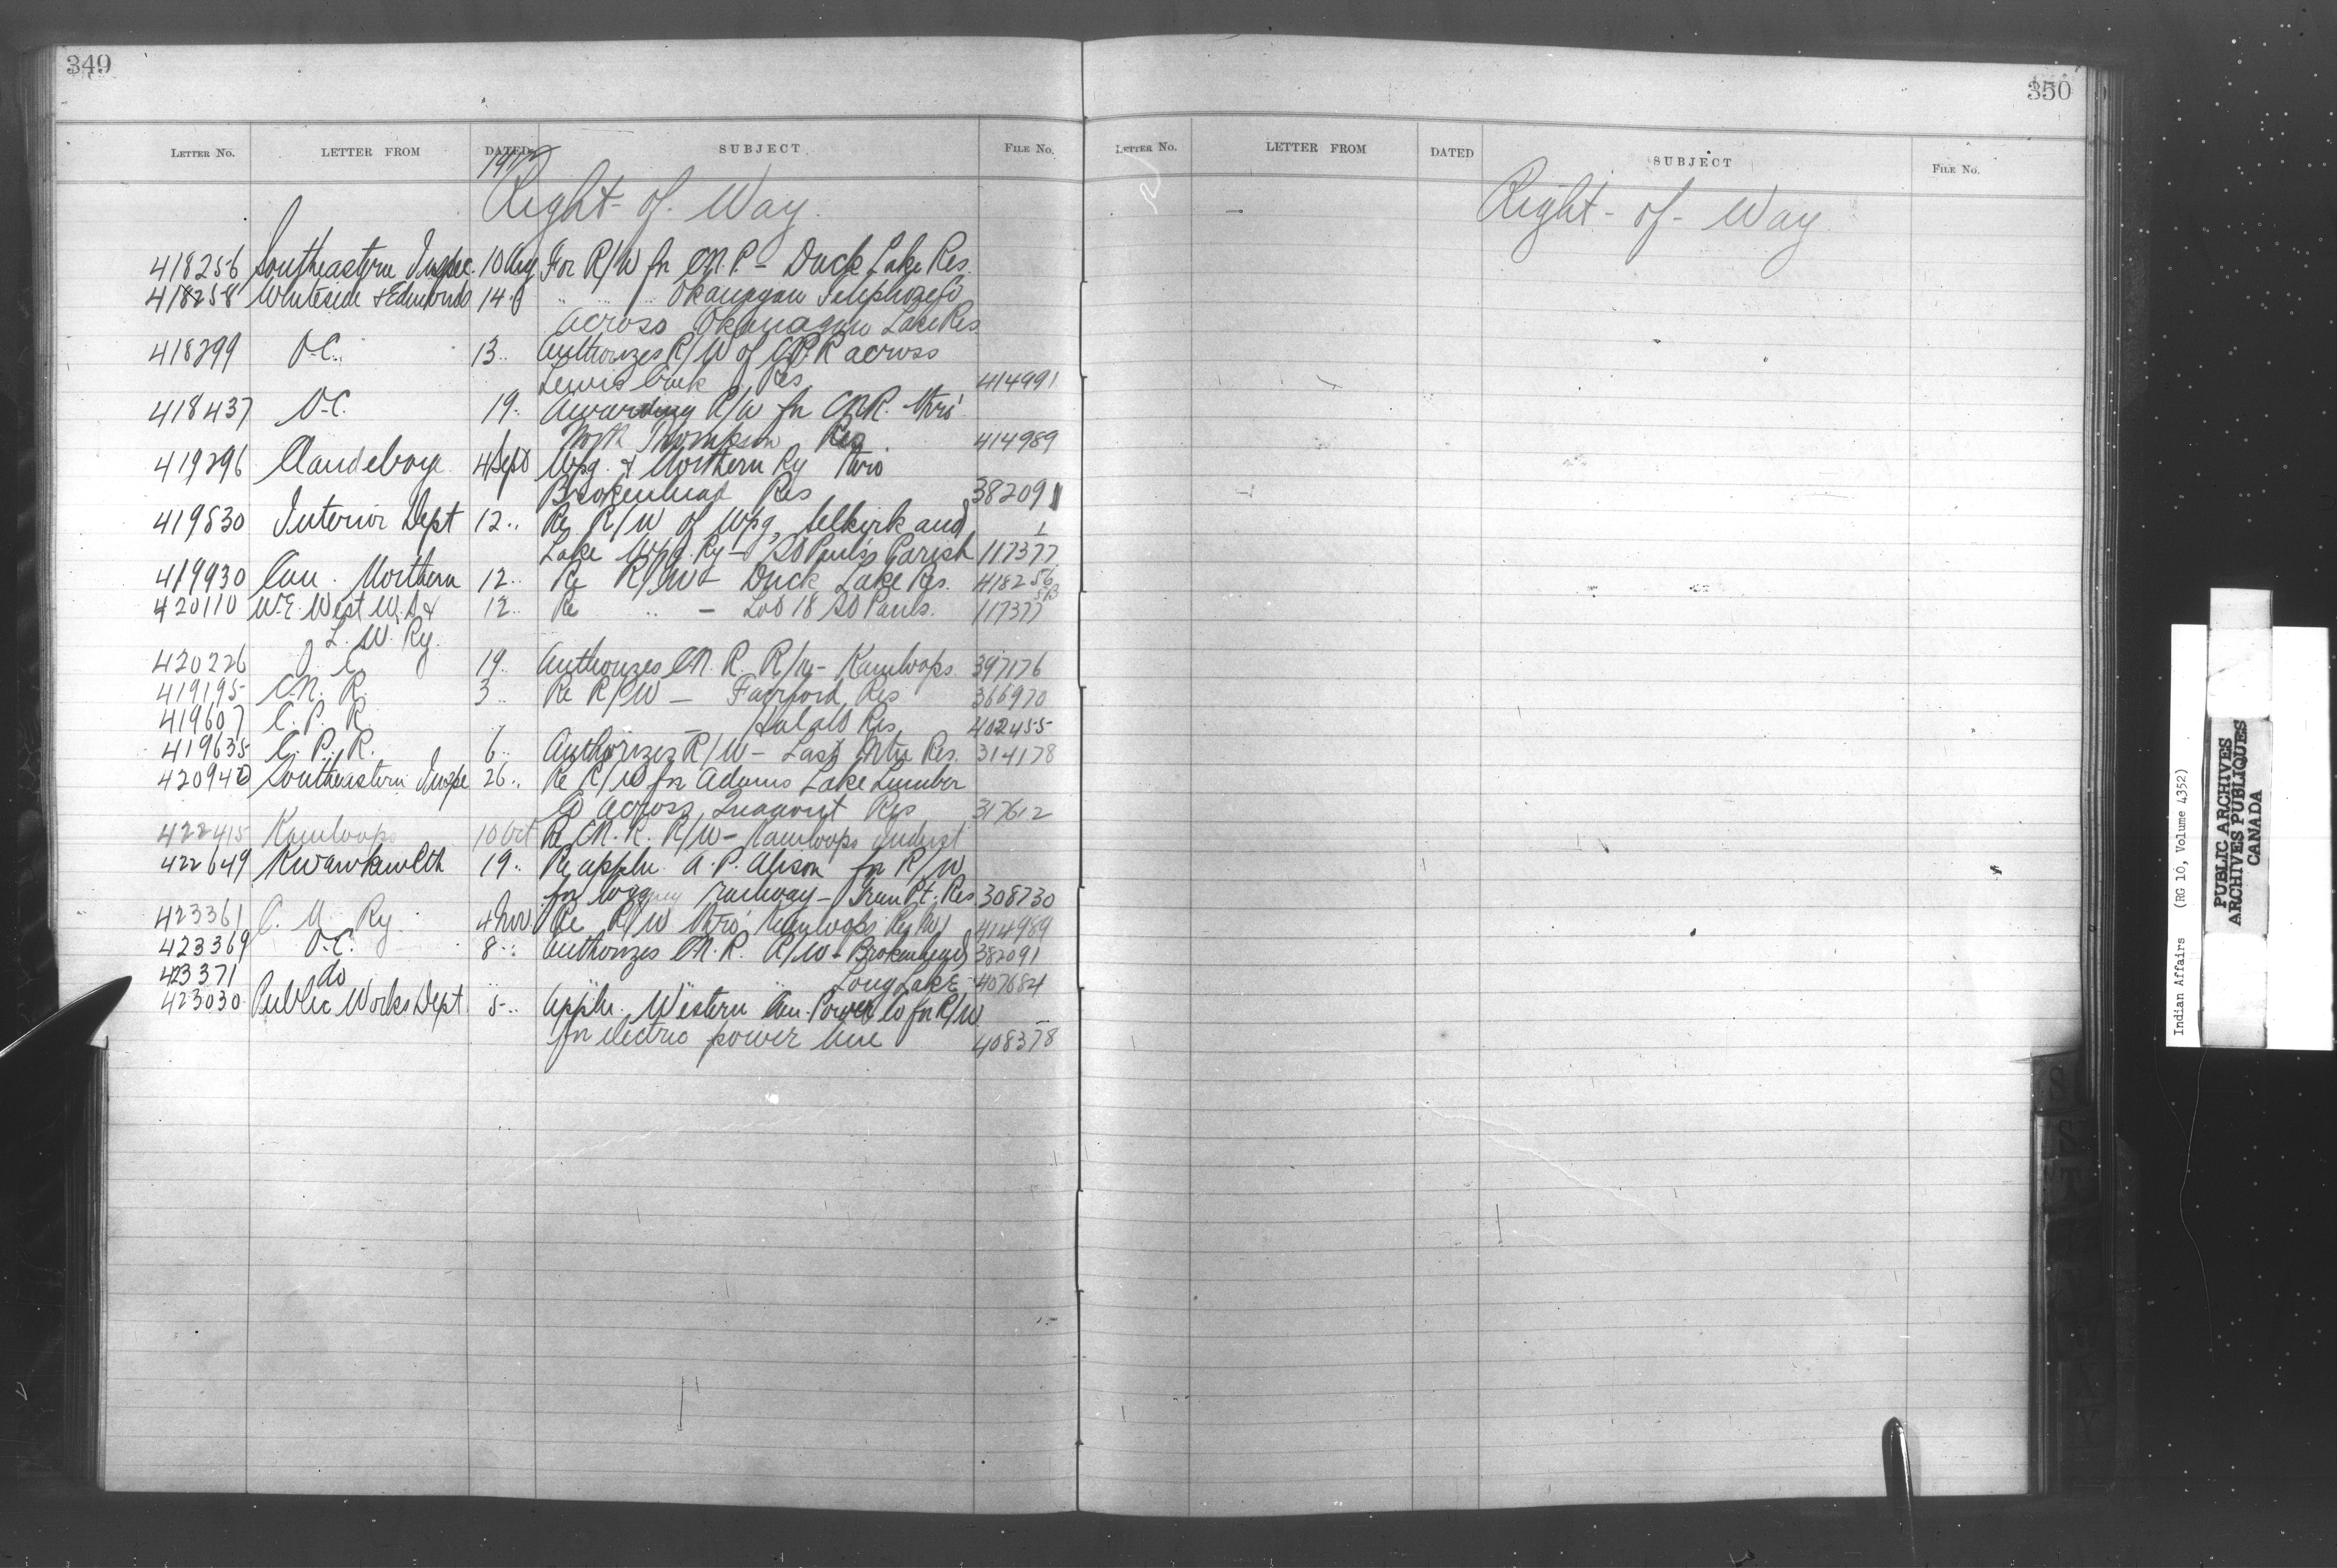 349
LETTER NO. LETTER FROM DATED SUBJECT FILE NO.
1912
Right of Way
418256 Southeastern Inspec. 10 Aug For R/W for C.N.P. - Duck Lake Res.
418258 Whiteside & Edmonds 14 " " " Okanagan Telephone Co
across Okanagan Lake Res
418299 O-C. 13 " Authorizes R/W of C.P.R across
Lewis Creek Res 414991
418437 O-C. 19 " Awarding R/W for CNR. thro'
North Thompson Res 414989
419296 Clandeboye 4 Sept Wpg. & Northern Ry thro
Brokenhead Res 382091
419830 Interior Dept 12 " Re R/W of Wpg, Selkirk and
Lake Wpg. Ry - St Paul's Parish 117377
419930 Can. Northern 12 " Re R/W - Duck Lake Res. 418256
420110 W.E. West W.S. & 12 " Re " - Lot 18 St Pauls. 117377
L. W. Ry.
420226 O C 19 " Authorizes C.N.R. R/W - Kamloops 397176
419195 C.N.R. 3 " Re R/W - Fairford Res 366970
419607 C.P.R. - Halalt Res 402455
419635 C.P.R. 6 " Authorizes R/W - Last Mtn Res. 314178
420940 Southeastern Inspe 26 " Re R/W for Adams Lake Lumber
Co across Res 317612
422415 Kamloops 10 Oct Re C.N.R. R/W - Kamloops
422649 Kwawkewlth 19 " Re appln. A.P. Alison for R/W
for logging railway - Pt. Res 308730
423361 C. N. Ry. 4 Nov Re R/W thro' Kamloops Res No 1 414989
423369 O-C. 8 " Authorizes C.N.R. R/W - Brokenhead 382091
423371 do " " " Long Lake 407684
423030 Public Works Dept 5 " Appln. Western Can. Power Co for R/W
for electric power line 408378
350
LETTER NO. LETTER FROM DATED SUBJECT FILE NO.
Right - of - Way
Indian Affairs (RG 10, Volume 4352)
PUBLIC ARCHIVES
ARCHIVES PUBLIQUES
CANADA